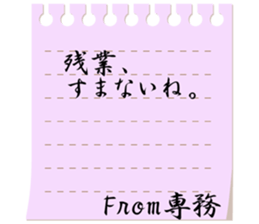 残業、
すまないね。
From専務